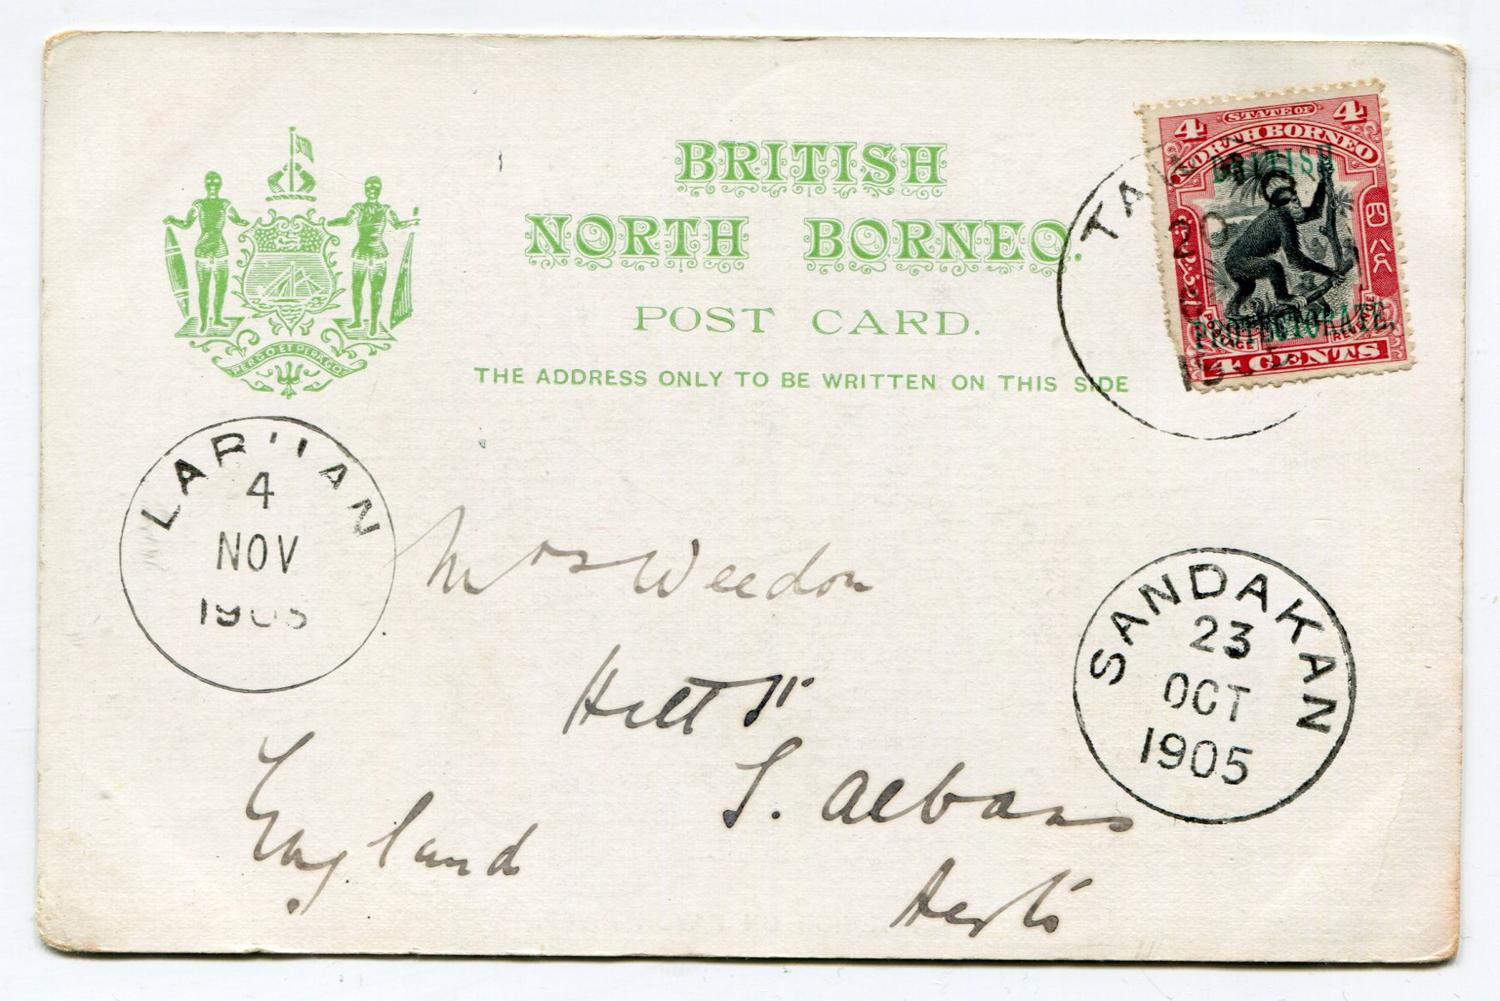 BRITISH
NORTH BORNEO.
POST CARD.
THE ADDRESS ONLY TO BE WRITTEN ON THIS SIDE
PERGO ET PERAGO
4 STATE OF 4
NORTH BORNEO
BRITISH
PROTECTORATE.
POSTAGE REVENUE
4 CENTS
20
LABUAN
4
NOV
1905
SANDAKAN
23
OCT
1905
Mrs Weedon
S. Albans
Herts
England